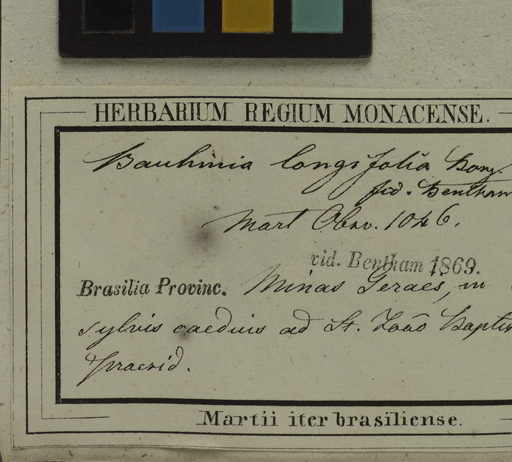 HERBARIUM REGIUM MONACENSE.
Bauhinia longifolia Bong.
fid. Bentham
Mart Obsv. 1046.
vid. Bentham 1869.
Brasilia Provinc. Minas Geraes, in
sylvis caeduis ad St. João Baptis
Praesid.
Martii iter brasiliense.